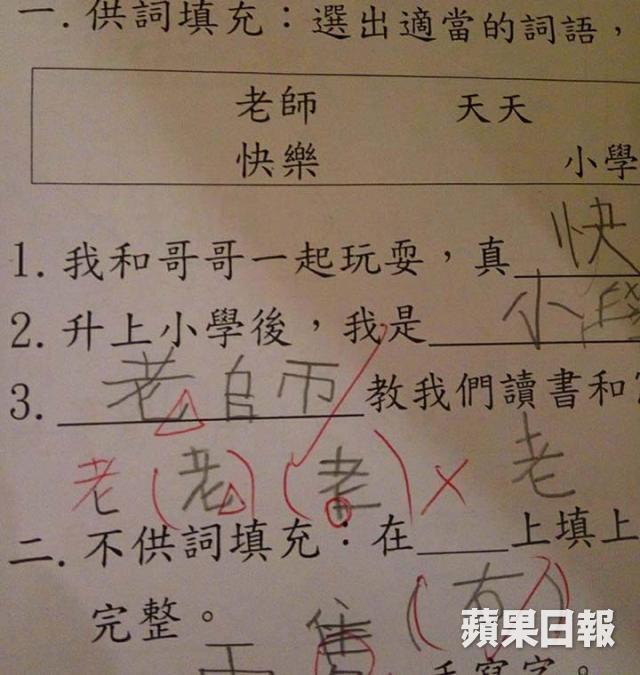 一.供詞填充：選出適當的詞語，
老師 天天
快樂 小學
1. 我和哥哥一起玩耍，真快
2. 升上小學後，我是小
3. 老師教我們讀書和
老(老)(老)×老
二.不供詞填充：在____上填上
完整。
蘋果日報